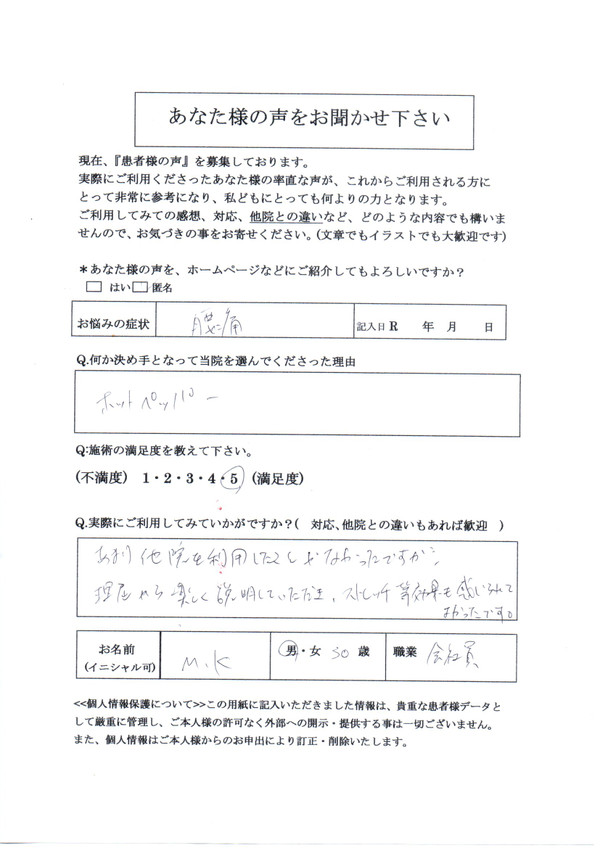 あなた様の声をお聞かせ下さい
現在、『患者様の声』を募集しております。
実際にご利用くださったあなた様の率直な声が、これからご利用される方に
とって非常に参考になり、私どもにとっても何よりの力となります。
ご利用してみての感想、対応、他院との違いなど、どのような内容でも構いま
せんので、お気づきの事をお寄せください。(文章でもイラストでも大歓迎です)
＊あなた様の声を、ホームページなどにご紹介してもよろしいですか？
□ はい□匿名
お悩みの症状 腰痛 記入日 R 年 月 日
Q.何か決め手となって当院を選んでくださった理由
ホットペッパー
Q:施術の満足度を教えて下さい。
(不満度) 1・2・3・4・5 (満足度)
Q.実際にご利用してみていかがですか？( 対応、他院との違いもあれば歓迎 )
あまり他院を利用したことがなかったですが、
楽しく説明していただき、ストレッチ等効果も感じられて
よかったです。
お名前 M.K 男・女 30 歳 職業 会社員
(イニシャル可)
<<個人情報保護について>>この用紙に記入いただきました情報は、貴重な患者様データと
して厳重に管理し、ご本人様の許可なく外部への開示・提供する事は一切ございません。
また、個人情報はご本人様からのお申出により訂正・削除いたします。